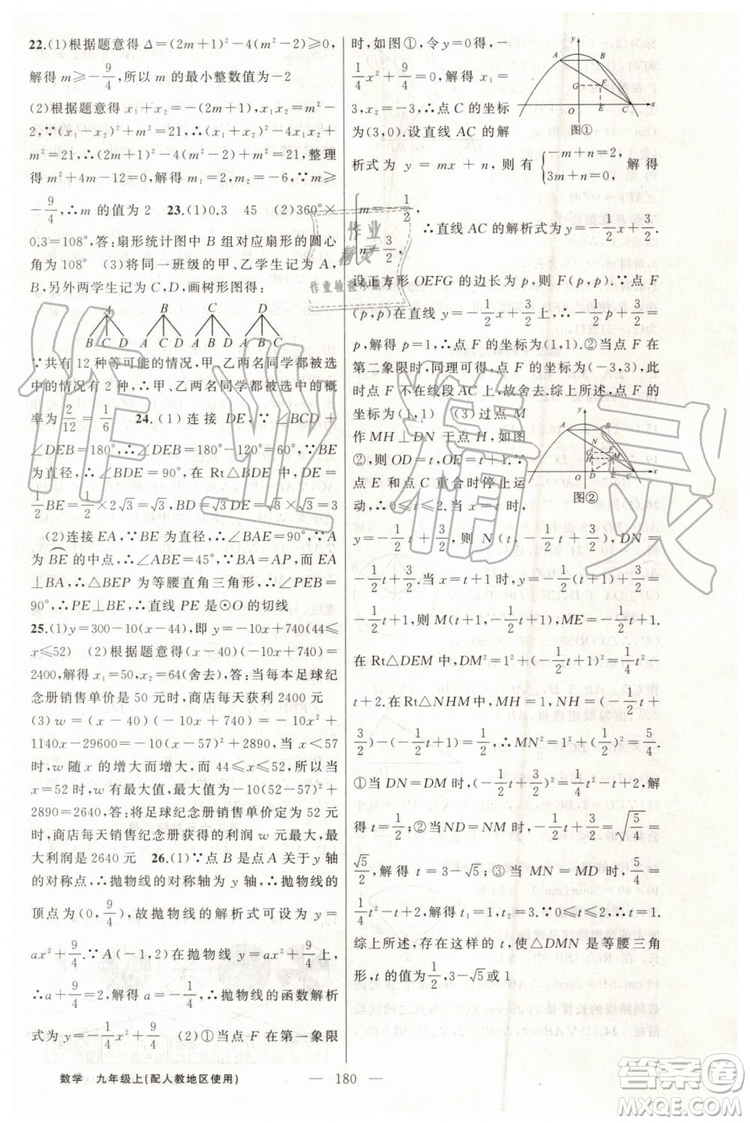 22.(1)根据题意得 Δ=(2m+1)²-4(m²-2)⩾0,
解得 m⩾-9/4,所以 m 的最小整数值为-2
(2)根据题意得 x₁+x₂=-(2m+1),x₁x₂=m²-
2,∵(x₁-x₂)²+m²=21,∴(x₁+x₂)²-4x₁x₂+
m²=21,∴(2m+1)²-4(m²-2)+m²=21,整理
得 m²+4m-12=0,解得 m₁=2,m₂=-6,∵m⩾
-9/4,∴m 的值为 2 23.(1)0.3 45 (2)360°×
0.3=108°,答:扇形统计图中 B 组对应扇形的圆心
角为 108° (3)将同一班级的甲、乙学生记为 A、B,
另外两学生记为 C、D,画树形图得:
A B C D
∵共有 12 种等可能的情况,甲、乙两名同学都被选
中的情况有 2 种,∴甲、乙两名同学都被选中的概
率为 2/12=1/6 24.(1)连接 DE,∵∠BCD+
∠DEB=180°,∴∠DEB=180°-120°=60°,
∵BE 为直径,∴∠BDE=90°,在 Rt△BDE 中,DE=
1/2 BE=1/2×2√3=√3,BD=√3 DE=√3×√3=3
(2)连接 EA,∵BE 为直径,∴∠BAE=90°,∵A
为 BE 的中点,∴∠ABE=45°,∵BA=AP,而 EA
⊥BA,∴△BEP 为等腰直角三角形,∴∠PEB=
90°,∴PE⊥BE,∴直线 PE 是⊙O 的切线
25.(1)y=300-10(x-44),即 y=-10x+740(44⩽
x⩽52) (2)根据题意得(x-40)(-10x+740)=
2400,解得 x₁=50,x₂=64(舍去),答:当每本足球纪
念册销售单价是 50 元时,商店每天获利 2400 元
(3)w=(x-40)(-10x+740)=-10x²+
1140x-29600=-10(x-57)²+2890,当 x<57
时,w 随 x 的增大而增大,而 44⩽x⩽52,所以当
x=52 时,w 有最大值,最大值为-10(52-57)²+
2890=2640,答:将足球纪念册销售单价定为 52 元
时,商店每天销售纪念册获得的利润 w 元最大,最
大利润是 2640 元 26.(1)∵点 B 是点 A 关于 y 轴
的对称点,∴抛物线的对称轴为 y 轴,∴抛物线的
顶点为(0,9/4),故抛物线的解析式可设为 y=
ax²+9/4.∵A(-1,2)在抛物线 y=ax²+9/4 上,
∴a+9/4=2,解得 a=-1/4,∴抛物线的函数解析
式为 y=-1/4x²+9/4 (2)①当点 F 在第一象限
时,如图①,令 y=0 得,-
1/4x²+9/4=0,解得 x₁=
3,x₂=-3,∴点 C 的坐标
为(3,0).设直线 AC 的解
图①
析式为 y=mx+n,则有{-m+n=2, 3m+n=0, 解得
{m=-1/2, n=3/2, ∴直线 AC 的解析式为 y=-1/2x+3/2.
设正方形 OEFG 的边长为 p,则 F(p,p).∵点 F
(p,p)在直线 y=-1/2x+3/2上,∴-1/2p+3/2=
p,解得 p=1,∴点 F 的坐标为(1,1).②当点 F 在
第二象限时,同理可得,点 F 的坐标为(-3,3),此
时点 F 不在线段 AC 上,故舍去;综上所述,点 F
的坐标为(1,1) (3)过点 M
作 MH⊥DN 于点 H,如图
②,则 OD=t,OE=t+1.∵
点 E 和点 C 重合时停止运
图②
动,∴0⩽t⩽2.当 x=t 时,
y=-1/2t+3/2,则 N(t,-1/2t+3/2),DN=
-1/2t+3/2.当 x=t+1 时,y=-1/2(t+1)+3/2=
-1/2t+1,则 M(t+1,-1/2t+1),ME=-1/2t+1.
在 Rt△DEM 中,DM²=1²+(-1/2t+1)²=1/4t²-
t+2.在 Rt△NHM 中,MH=1,NH=(-1/2t+
3/2)-(-1/2t+1)=1/2,∴MN²=1²+(1/2)²=5/4.
①当 DN=DM 时,(-1/2t+3/2)²=1/4t²-t+2,解
得 t=1/2;②当 ND=NM 时,-1/2t+3/2=√(5/4)=
√5/2,解得 t=3-√5;③当 MN=MD 时,5/4=
1/4t²-t+2,解得 t₁=1,t₂=3.∵0⩽t⩽2,∴t=1.
综上所述,存在这样的 t,使△DMN 是等腰三角
形,t 的值为1/2,3-√5或 1
数学 九年级上(配人教地区使用)
— 180 —
作业精灵
答案圈
MXQE.COM